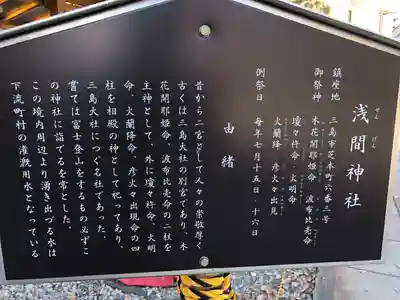 浅間神社
せんげん
鎮座地　三島市芝本町六番三号
御祭神　木花開耶姫命、波布比売命
瓊々杵命、大明命
火蘭降命、彦火々出見
例祭日　毎年七月十五日・十六日
由緒
昔から二宮として人々の崇敬厚く
古くは三島大社の別宮であり、木
花開耶姫命、波布比売命の二柱を
主神として、外に瓊々杵命、大明
命、火蘭降命、彦火々出現命の四
柱を相殿の神として祀ってあり、
三島大社につぐ名社であった。
嘗ては富士登山をするもの必ずこ
の神社に詣でるを常とした。
この境内周辺より湧き出づる水は
下流町村の灌漑用水となっている